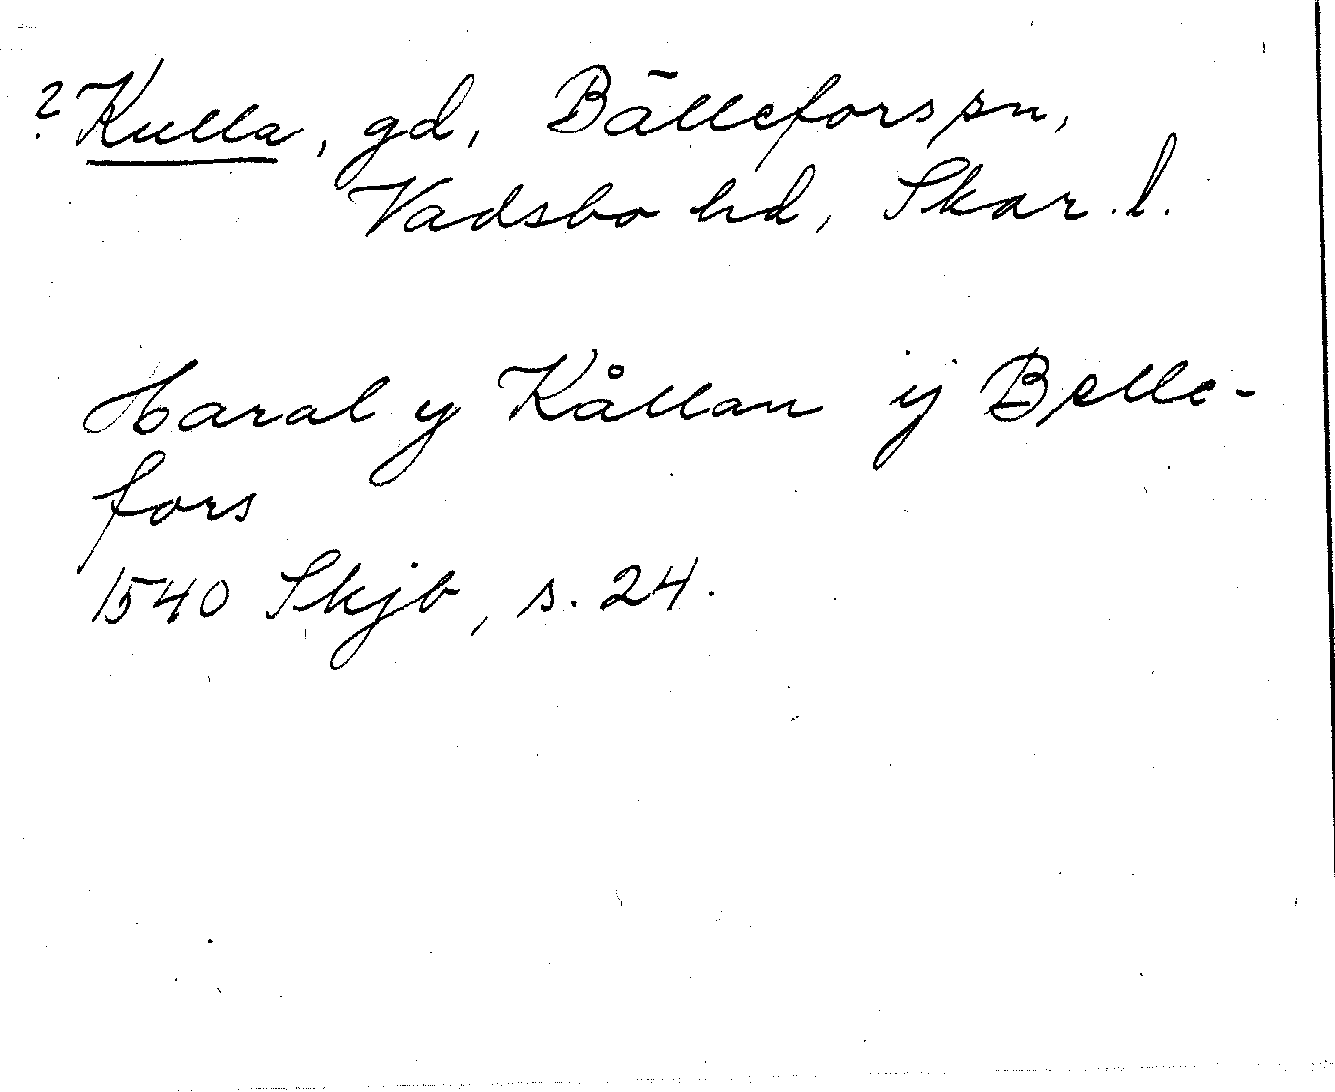 ? Kulla, gd, Bällefors sn,
Vadsbo hd, Skar. l.
Haral y Kållan ij Belle-
fors
1540 Skjb, s. 24.